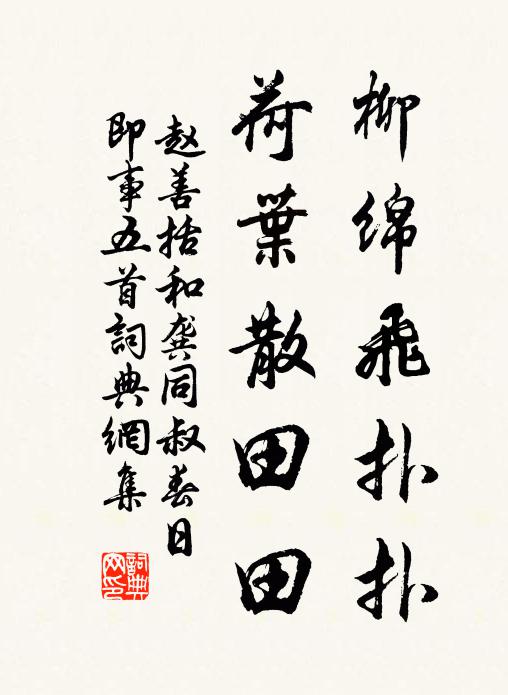 柳綿飛扑扑
荷葉散田田
赵善括和龚同叔春日
即事五首詞典網集
詞典網印